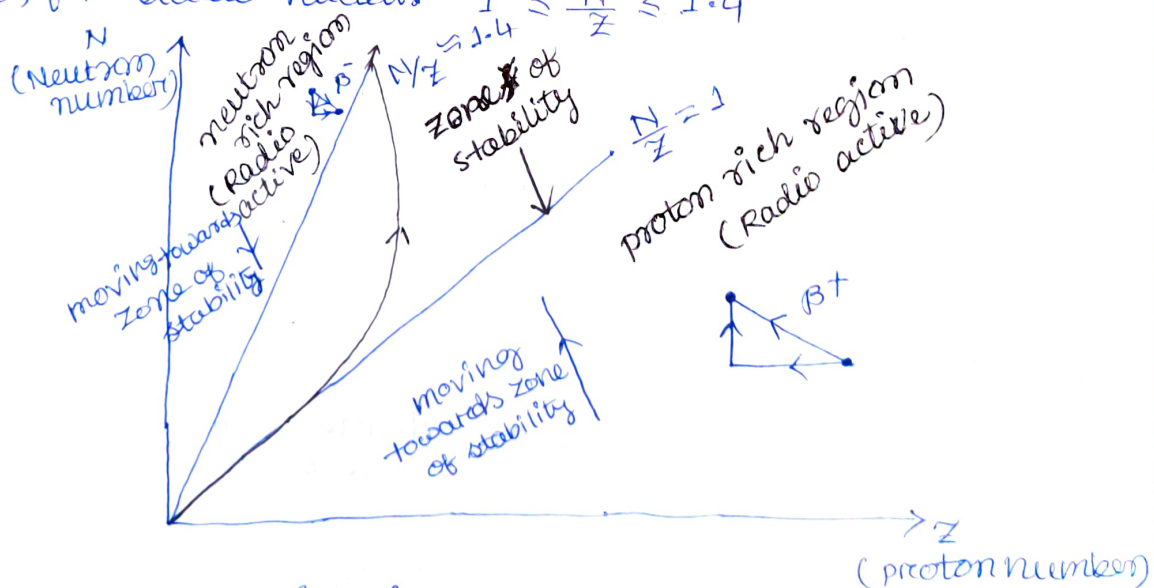 1 ≤ N/Z ≤ 1.4
N
(Neutron
number)
neutron
rich region
(Radio
active)
β⁻
N/Z ≈ 1.4
zone of
stability
N/Z = 1
proton rich region
(Radio active)
moving towards
zone of
stability
β+
moving
towards zone
of stability
Z
(proton number)